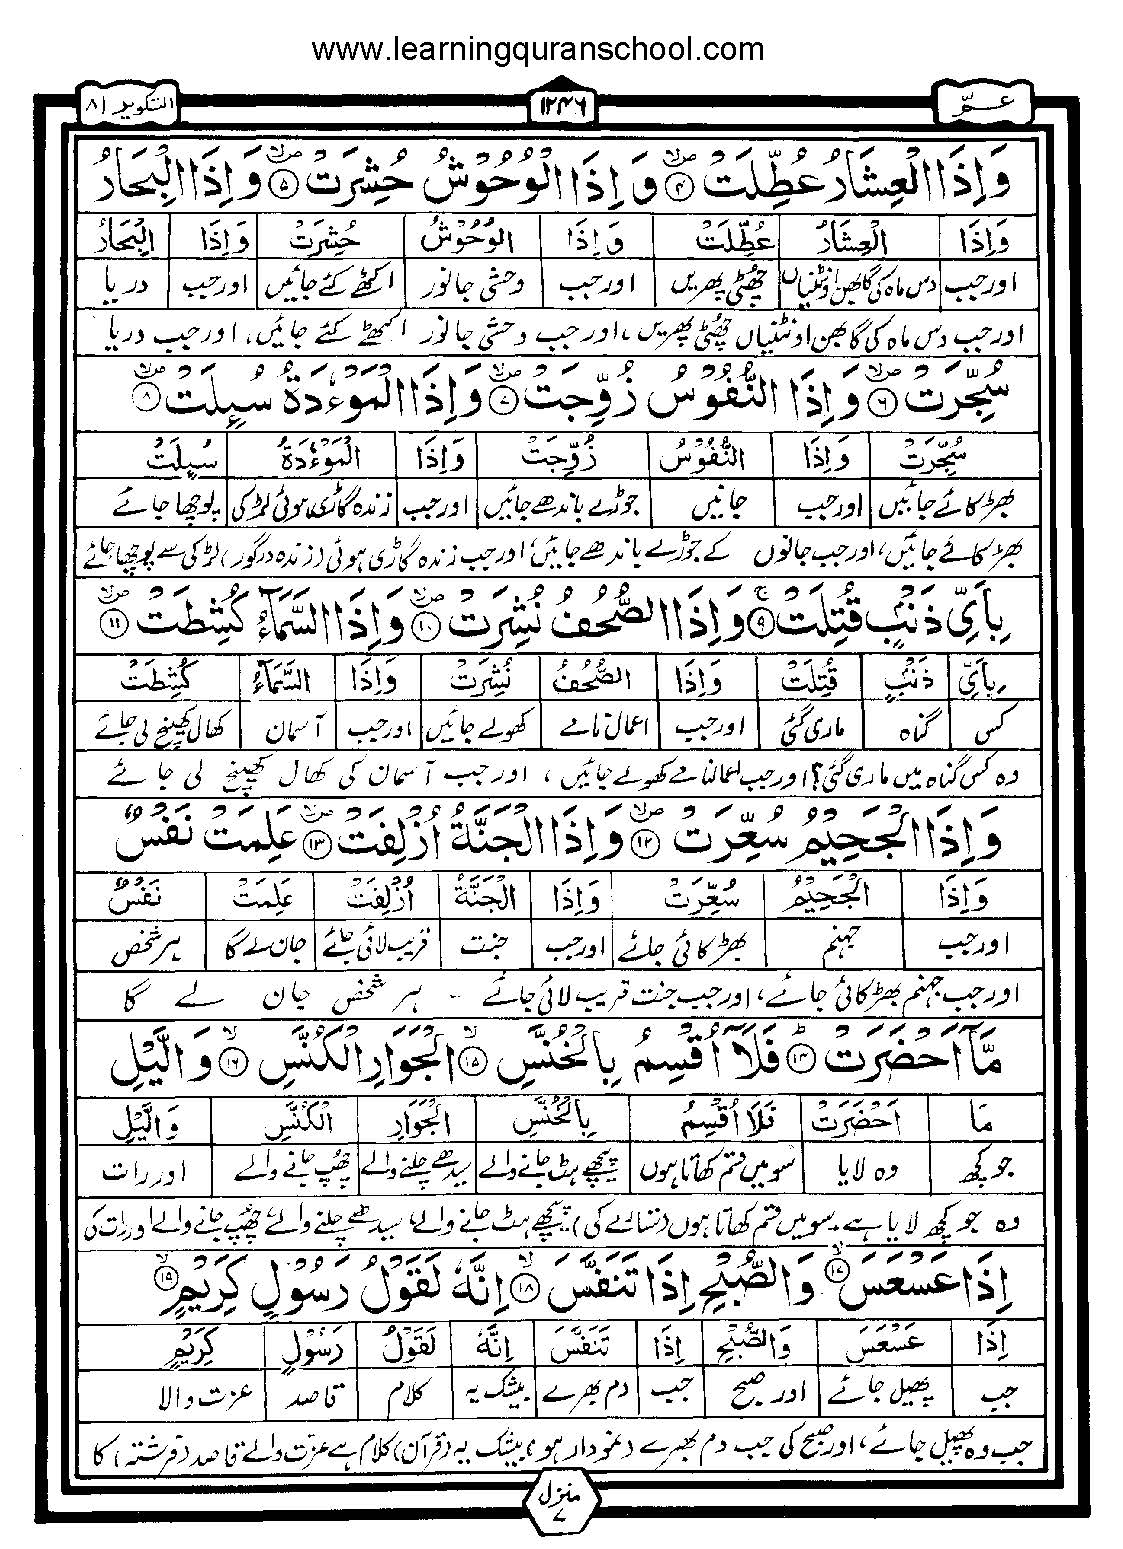 www.learningquranschool.com
عـمّ ١٢٤٦ التكوير ٨١
وَإِذَا الْعِشَارُ عُطِّلَتْ ۴ وَإِذَا الْوُحُوْشُ حُشِرَتْ ۵ وَإِذَا الْبِحَارُ
وَإِذَا الْعِشَارُ عُطِّلَتْ وَإِذَا الْوُحُوْشُ حُشِرَتْ وَإِذَا الْبِحَارُ
اور جب دس ماہ کی گابھن اونٹنیاں چھٹی پھریں اور جب وحشی جانور اکٹھے کئے جائیں اور جب دریا
اور جب دس ماہ کی گابھن اونٹنیاں چھٹی پھریں، اور جب وحشی جانور اکٹھے کئے جائیں، اور جب دریا
سُجِّرَتْ ۶ وَإِذَا النُّفُوْسُ زُوِّجَتْ ۷ وَإِذَا الْمَوْءٗدَةُ سُىِٕلَتْ ۸
سُجِّرَتْ وَإِذَا النُّفُوْسُ زُوِّجَتْ وَإِذَا الْمَوْءٗدَةُ سُىِٕلَتْ
بھڑکائے جائیں اور جب جانیں جوڑے باندھے جائیں اور جب زندہ گاڑی ہوئی لڑکی پوچھا جائے
بھڑکائے جائیں، اور جب جانوں کے جوڑے باندھے جائیں، اور جب زندہ گاڑی ہوئی (زندہ درگور) لڑکی سے پوچھا جائے
بِأَيِّ ذَنْۢبٍ قُتِلَتْ ۹ وَإِذَا الصُّحُفُ نُشِرَتْ ۱۰ وَإِذَا السَّمَآءُ كُشِطَتْ ۱۱
بِأَيِّ ذَنْۢبٍ قُتِلَتْ وَإِذَا الصُّحُفُ نُشِرَتْ وَإِذَا السَّمَآءُ كُشِطَتْ
کس گناہ ماری گئی اور جب اعمال نامے کھولے جائیں اور جب آسمان کھال کھینچ لی جائے
وہ کس گناہ میں ماری گئی؟ اور جب اعمالنامے کھولے جائیں، اور جب آسمان کی کھال کھینچ لی جائے
وَإِذَا الْجَحِيْمُ سُعِّرَتْ ۱۲ وَإِذَا الْجَنَّةُ أُزْلِفَتْ ۱۳ عَلِمَتْ نَفْسٌ
وَإِذَا الْجَحِيْمُ سُعِّرَتْ وَإِذَا الْجَنَّةُ أُزْلِفَتْ عَلِمَتْ نَفْسٌ
اور جب جہنم بھڑکائی جائے اور جب جنت قریب لائی جائے جان لے گا ہر شخص
اور جب جہنم بھڑکائی جائے، اور جب جنت قریب لائی جائے - ہر شخص جان لے گا
مَّآ أَحْضَرَتْ ۱۴ فَلَآ أُقْسِمُ بِالْخُنَّسِ ۱۵ الْجَوَارِ الْكُنَّسِ ۱۶ وَالَّيْلِ
مَا أَحْضَرَتْ فَلَا أُقْسِمُ بِالْخُنَّسِ الْجَوَارِ الْكُنَّسِ وَالَّيْلِ
جو کچھ وہ لایا سو میں قسم کھاتا ہوں پیچھے ہٹ جانے والے سیدھے چلنے والے چھپ جانے والے اور رات
وہ جو کچھ لایا ہے۔ سو میں قسم کھاتا ہوں (ستارے کی) پیچھے ہٹ جانے والے، سیدھے چلنے والے، چھپ جانے والے اور رات کی
إِذَا عَسْعَسَ ۱۷ وَالصُّبْحِ إِذَا تَنَفَّسَ ۱۸ إِنَّهٗ لَقَوْلُ رَسُوْلٍ كَرِيْمٍ ۱۹
إِذَا عَسْعَسَ وَالصُّبْحِ إِذَا تَنَفَّسَ إِنَّهٗ لَقَوْلُ رَسُوْلٍ كَرِيْمٍ
جب پھیل جائے اور صبح جب دم بھرے بیشک یہ کلام قاصد عزت والا
جب وہ پھیل جائے، اور صبح کی جب دم بھرے (نمودار ہو) بیشک یہ (قرآن) کلام ہے عزت والے قاصد (فرشتہ) کا
منزل ۷